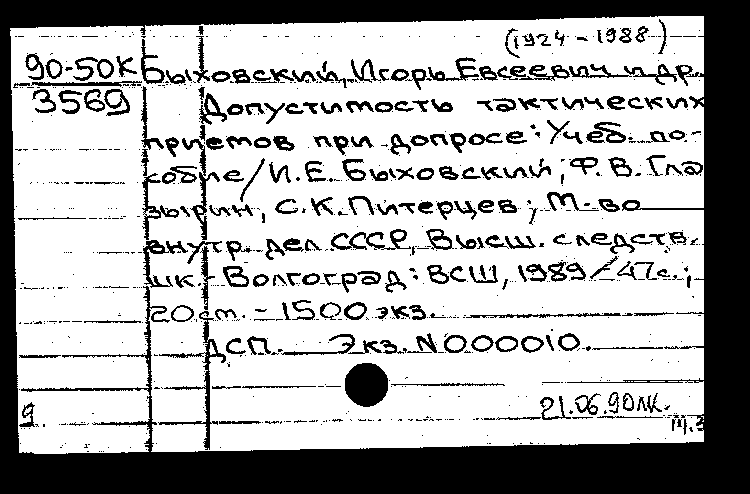 (1924-1988)
90-50К Быховский, Игорь Евсеевич и др.
3569 Допустимость тактических
приемов при допросе: Учеб. по-
собие/И.Е. Быховский, Ф.В. Гла
зырин, С.К. Питерцев; М-во
внутр. дел СССР, Высш. следств.
шк.- Волгоград: ВСШ, 1989/-47с.;
20 см. - 1500 экз.
ДСП. Экз. N000010.
21.06.90 ЛК.
9.